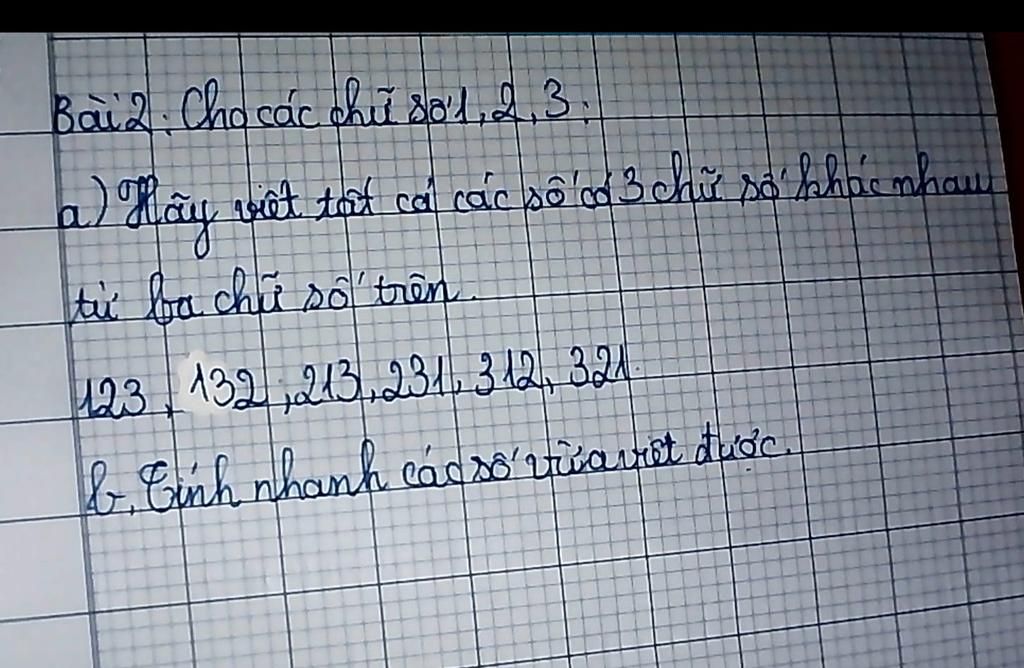 Bài 2: Cho các chữ số 1, 2, 3.
a) Hãy viết tất cả các số có 3 chữ số khác nhau
từ ba chữ số trên.
123, 132, 213, 231, 312, 321.
b, Tính nhanh các số vừa viết được.